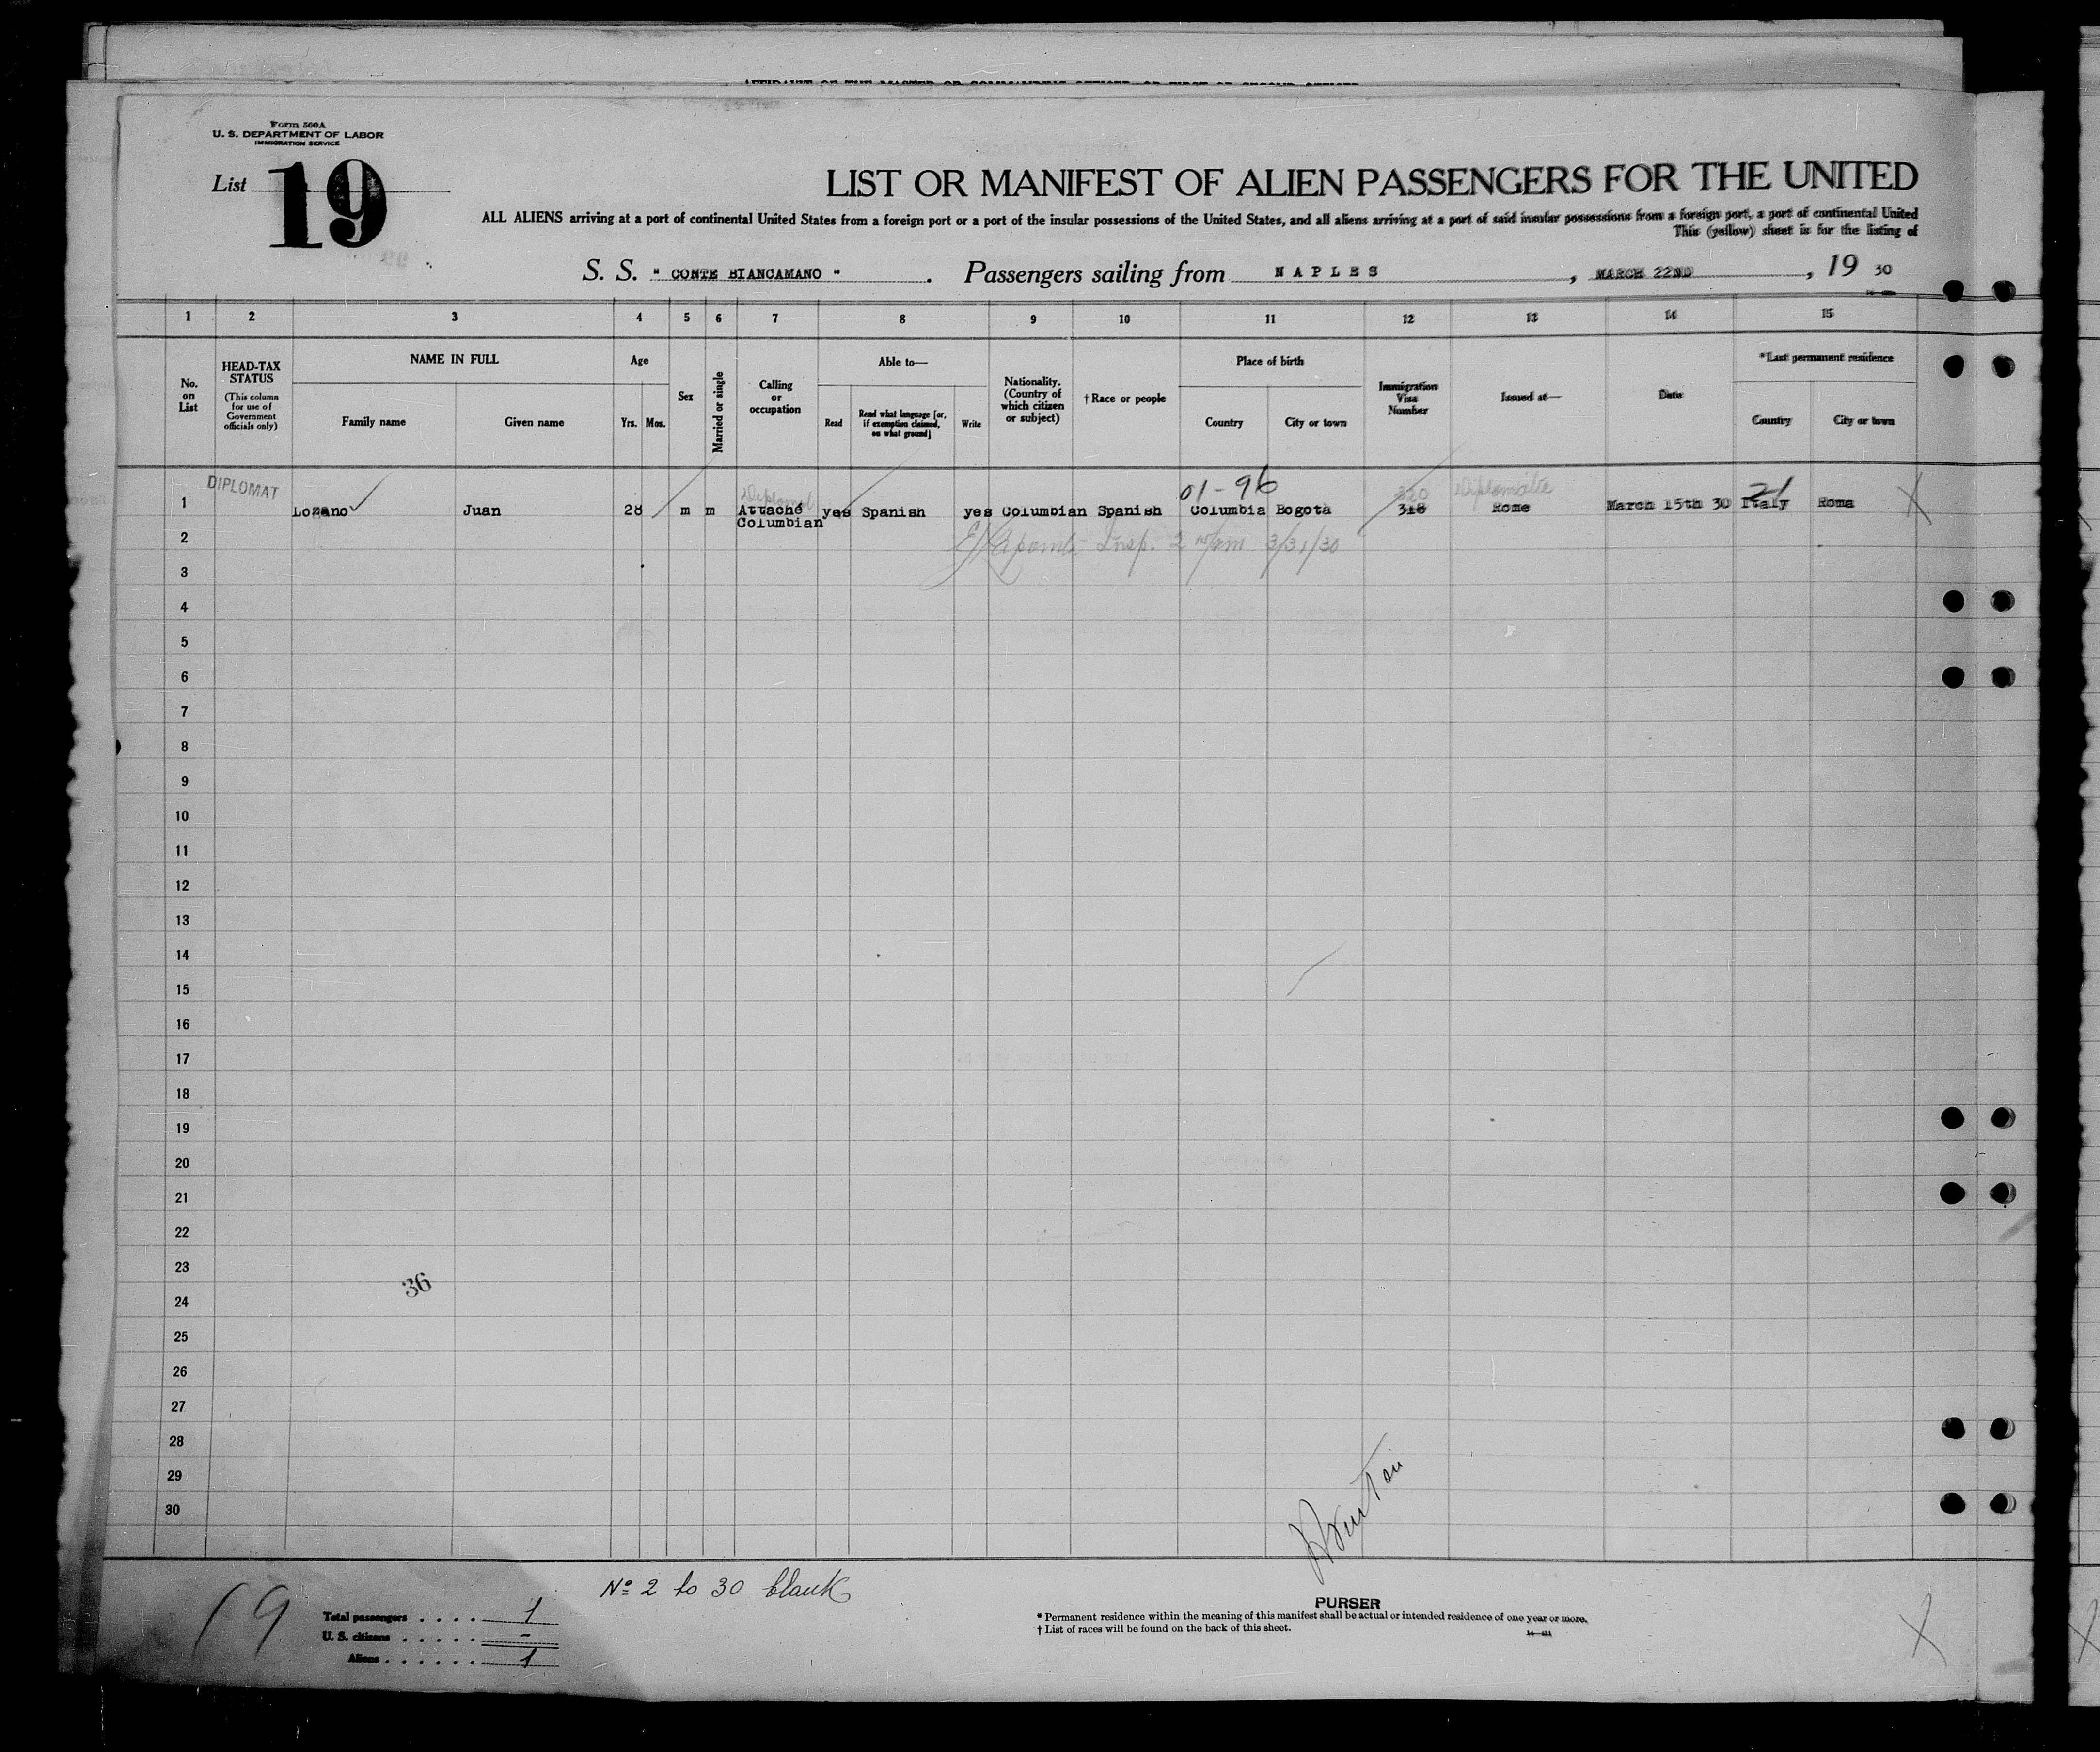 Form 500A
U. S. DEPARTMENT OF LABOR
IMMIGRATION SERVICE
List 19
LIST OR MANIFEST OF ALIEN PASSENGERS FOR THE UNITED
ALL ALIENS arriving at a port of continental United States from a foreign port or a port of the insular possessions of the United States, and all aliens arriving at a port of said insular possessions from a foreign port, a port of continental United
This (yellow) sheet is for the listing of
S. S. " CONTE BIANCAMANO " . Passengers sailing from NAPLES , MARCH 22ND , 19 30
1 2 3 4 5 6 7 8 9 10 11 12 13 14 15
No. on List
HEAD-TAX STATUS (This column for use of Government officials only)
NAME IN FULL
Family name Given name
Age
Yrs. Mos.
Sex
Married or single
Calling or occupation
Able to—
Read Read what language [or, if exemption claimed, on what ground] Write
Nationality. (Country of which citizen or subject)
† Race or people
Place of birth
Country City or town
Immigration Visa Number
Issued at—
Date
*Last permanent residence
Country City or town
DIPLOMAT Diplomat 01-96 320 Diplomatic 21
1 Lozano Juan 28 m m Attaché yes Spanish yes Columbian Spanish Columbia Bogotà 318 Rome March 15th 30 Italy Roma
Columbian
2 Insp. 3/31/30
3
4
5
6
7
8
9
10
11
12
13
14
15
16
17
18
19
20
21
22
23
36
24
25
26
27
28
29
30
No 2 to 30 blank
19
Total passengers . . . . . 1
U. S. citizens . . . . . -
Aliens . . . . . . 1
PURSER
* Permanent residence within the meaning of this manifest shall be actual or intended residence of one year or more.
† List of races will be found on the back of this sheet.